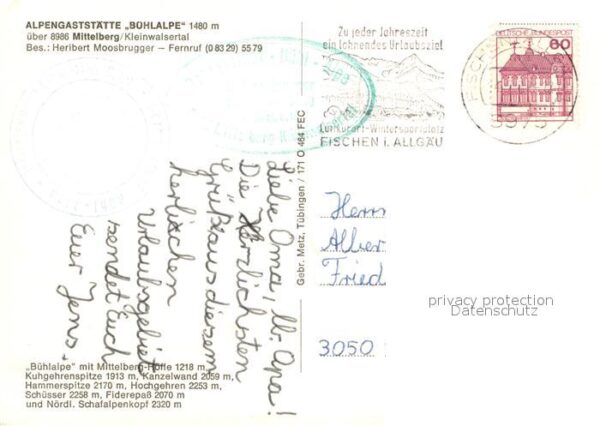 ALPENGASTSTÄTTE „BÜHLALPE" 1480 m
über 8986 Mittelberg/Kleinwalsertal
Bes.: Heribert Moosbrugger - Fernruf (0 83 29) 55 79
Zu jeder Jahreszeit
ein lohnendes Urlaubsziel
Luftkurort-Wintersportplatz
FISCHEN i. ALLGÄU
DEUTSCHE BUNDESPOST
60
Gebr. Metz, Tübingen / 171 O 464 FEC
Liebe Oma, lb. Opa!
Die Herzlichsten
Grüße aus diesem
herrlichen
Urlaubsgebiet
sendet Euch
Euer Jens.
Herrn
Alber
Fried
3050
privacy protection
Datenschutz
„Bühlalpe" mit Mittelberg-Höfle 1218 m,
Kuhgehrenspitze 1913 m, Kanzelwand 2059 m,
Hammerspitze 2170 m, Hochgehren 2253 m,
Schüsser 2258 m, Fiderepaß 2070 m
und Nördl. Schafalpenkopf 2320 m